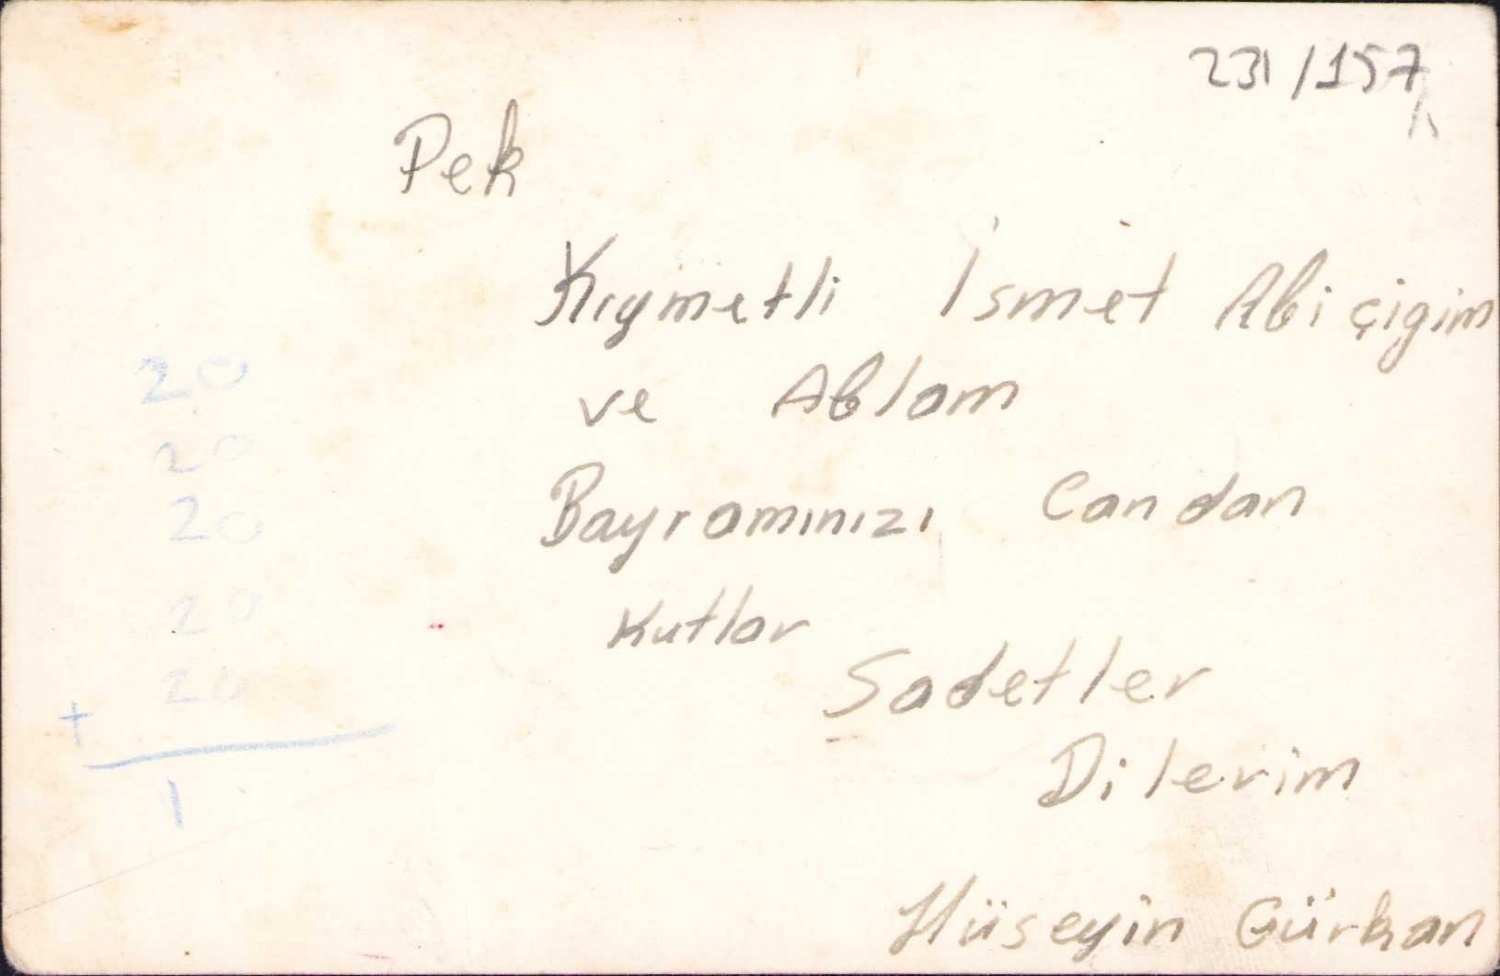 231/157
Pek
Kıymetli İsmet Abi çigim
ve Ablam
Bayramınızı Candan
Kutlar
Sadetler
Dilerim
Hüseyin Gürkan
20
20
20
20
20
+
1